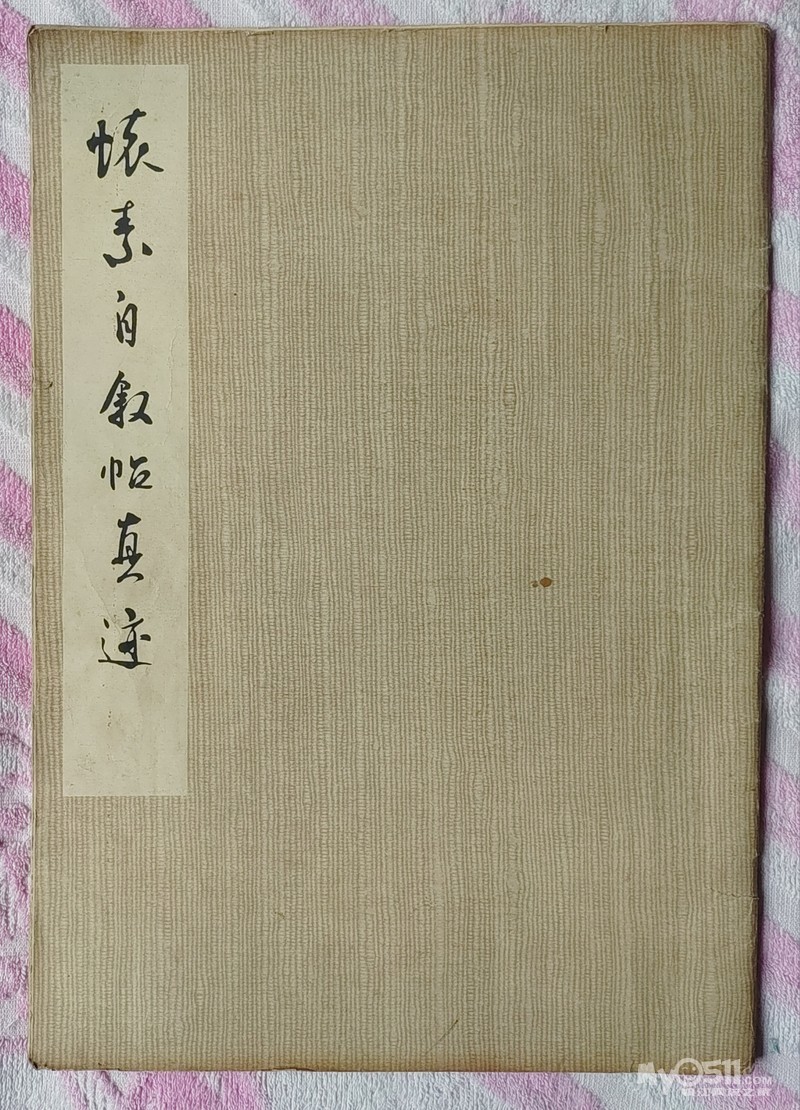 懐素自叙帖真迹
My0511.COM